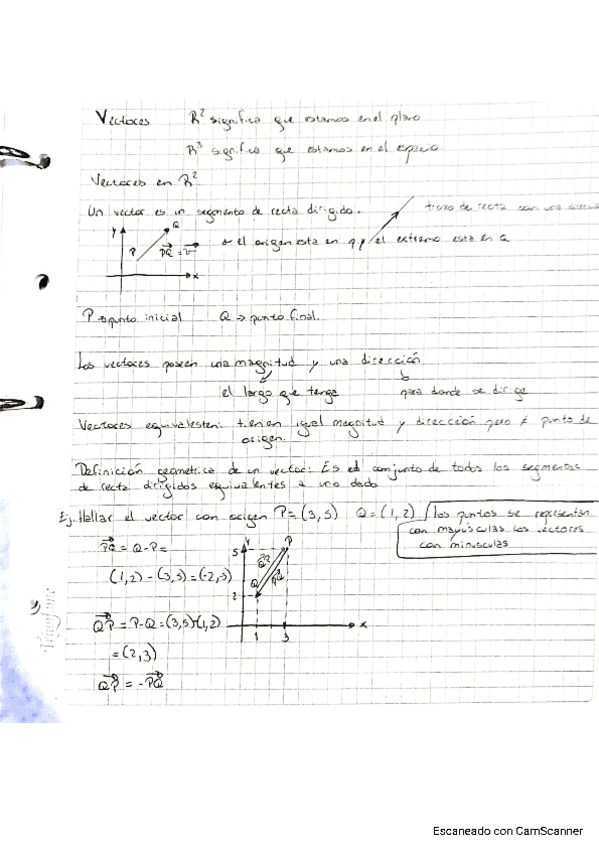 Vectores R² significa que estamos en el plano
R³ significa que estamos en el espacio
Vectores en R²
Un vector es un segmento de recta dirigido. trozo de recta con una
y Q
P PQ = v → el origen esta en p y el extremo esta en Q
x
P → punto inicial Q → punto final.
Los vectores poseen una magnitud y una dirección
el largo que tenga para donde se dirige
Vectores equivalesten: tienen igual magnitud y dirección pero ≠ punto de
origen.
Definición geometrica de un vector: Es el conjunto de todos los segmentos
de recta dirigidos equivalentes a uno dado
Ej. Hallar el vector con origen P = (3,5) Q = (1,2) los puntos se representan
con mayúsculas los vectores
con minusculas
PQ = Q-P =
(1,2) - (3,5) = (-2,-3)
5 y P
QP
Q PQ
2
QP = P-Q = (3,5)-(1,2)
1 3 x
= (2,3)
QP = -PQ
Escaneado con CamScanner